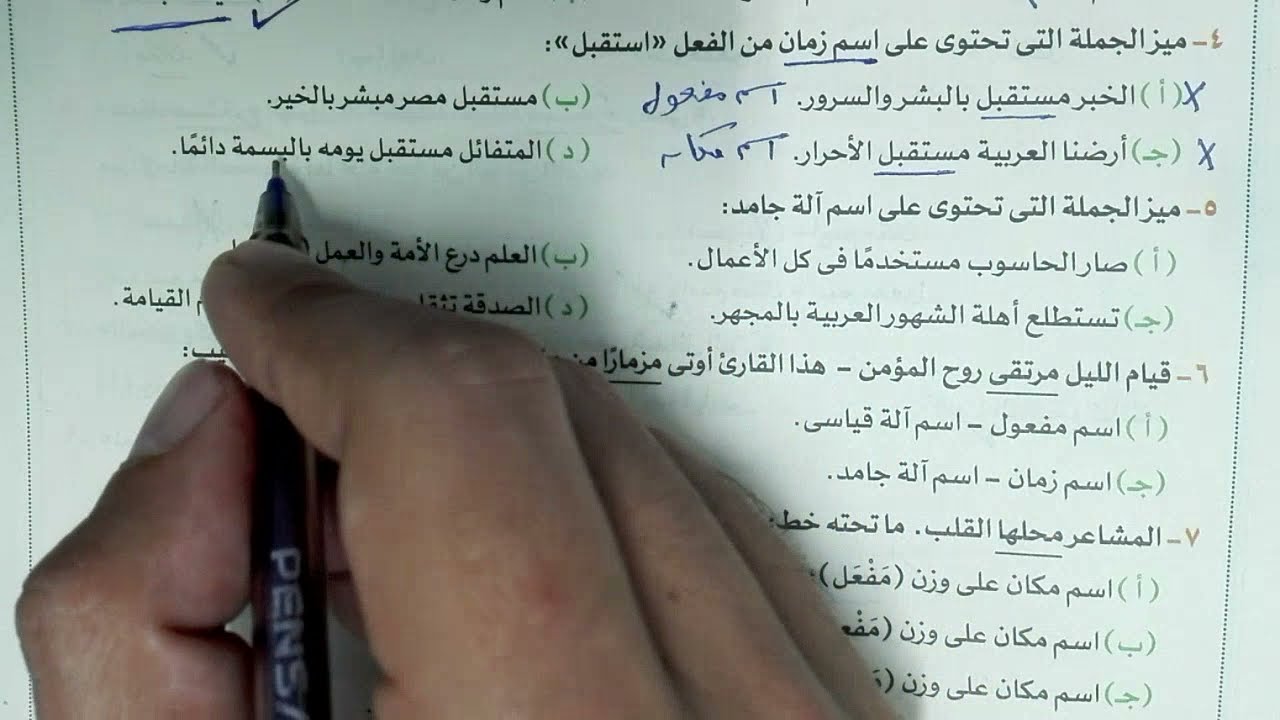 ٤- ميز الجملة التى تحتوى على اسم زمان من الفعل «استقبل»:
(أ) الخبر مستقبل بالبشر والسرور. اسم مفعول (ب) مستقبل مصر مبشر بالخير.
(جـ) أرضنا العربية مستقبل الأحرار. اسم مكان (د) المتفائل مستقبل يومه بالبسمة دائمًا.
٥- ميز الجملة التى تحتوى على اسم آلة جامد:
(أ) صار الحاسوب مستخدمًا فى كل الأعمال. (ب) العلم درع الأمة والعمل
(جـ) تستطلع أهلة الشهور العربية بالمجهر. (د) الصدقة القيامة.
٦- قيام الليل مرتقى روح المؤمن - هذا القارئ أوتى مزمارًا من
(أ) اسم مفعول - اسم آلة قياسى.
(جـ) اسم زمان - اسم آلة جامد.
٧- المشاعر محلها القلب. ما تحته خط:
(أ) اسم مكان على وزن (مَفْعَل).
(ب) اسم مكان على وزن
(جـ) اسم مكان على وزن
PENSA